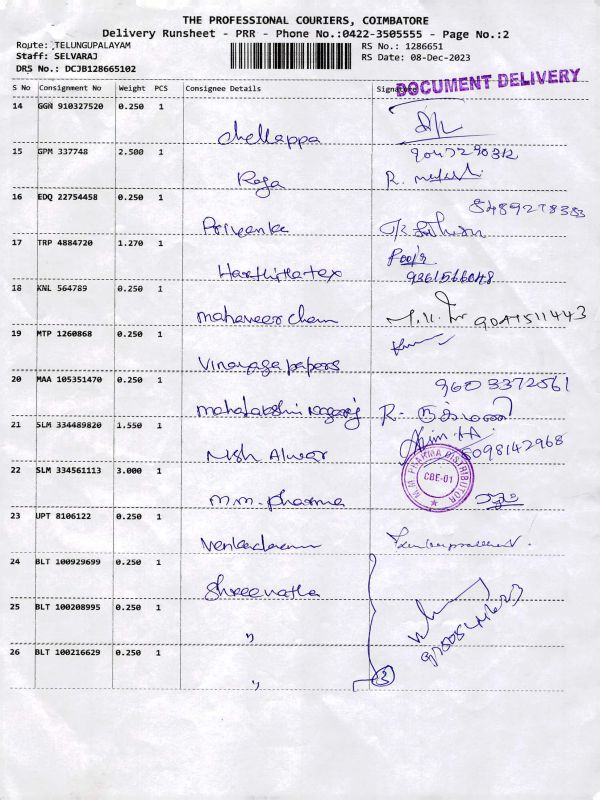 THE PROFESSIONAL COURIERS, COIMBATORE
Delivery Runsheet - PRR - Phone No.:0422-3505555 - Page No.:2
Route: TELUNGUPALAYAM
RS No.: 1286651
Staff: SELVARAJ
RS Date: 08-Dec-2023
DRS No.: DCJB128665102
DOCUMENT DELIVERY
S No Consignment No Weight PCS Consignee Details Signature
14 GGN 910327520 0.250 1
chellappa
15 GPM 337748 2.500 1
9047290312
Raja R.
16 EDQ 22754458 0.250 1
8489278383
Priyanka
17 TRP 4884720 1.270 1
Pooja
Harthitha tex 9361566048
18 KNL 564789 0.250 1
mahaveer cham 9047511443
19 MTP 1260868 0.250 1
Vinayaga papers
20 MAA 105351470 0.250 1
9603372561
mahalakshmi nagaraj R.
21 SLM 334489820 1.550 1
8098142968
Nish Alwar
22 SLM 334561113 3.000 1
M.M PHARMA DISTRIBUTOR
CBE-01
m.m. pharma
23 UPT 8106122 0.250 1
24 BLT 100929699 0.250 1
Shreevatha
25 BLT 100208995 0.250 1
"
26 BLT 100216629 0.250 1
" 3